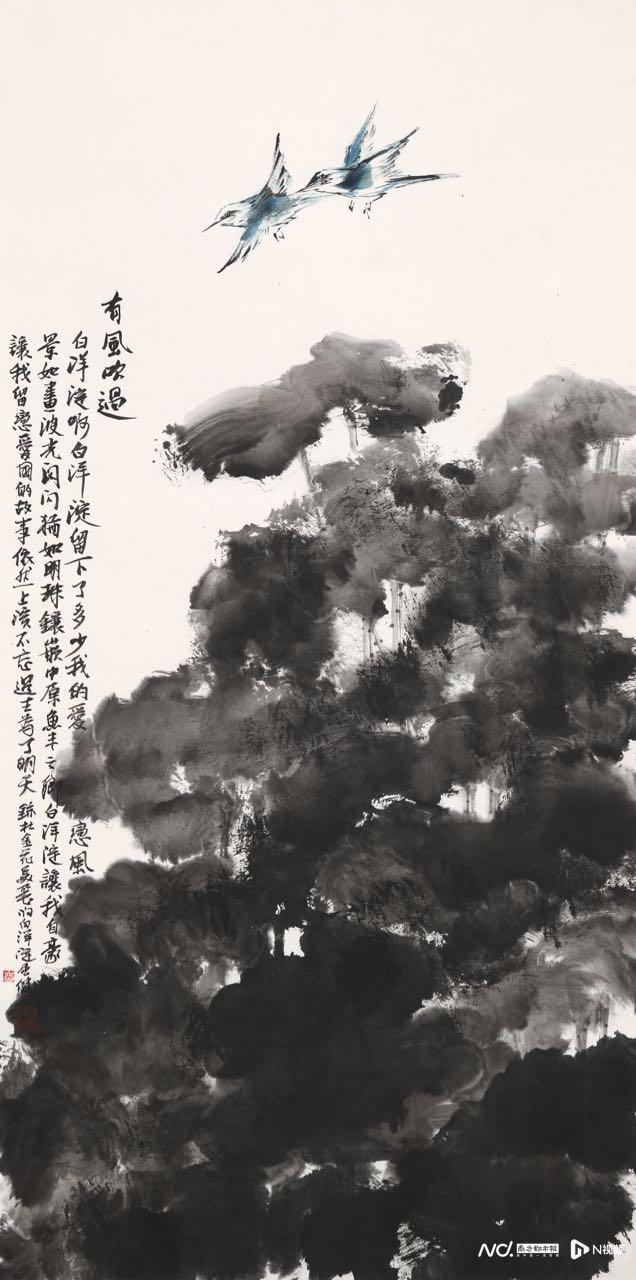 有風吹過
白洋淀啊白洋淀留下了多少我的愛 戀風
景如畫波光閃闪猶如明珠鑲嵌中原魚丰之鄉白洋淀讓我自豪
讓我留戀愛國的故事依然上演不忘過去為了明天 錄杜金花美麗的白洋淀
南方都市报
N视频